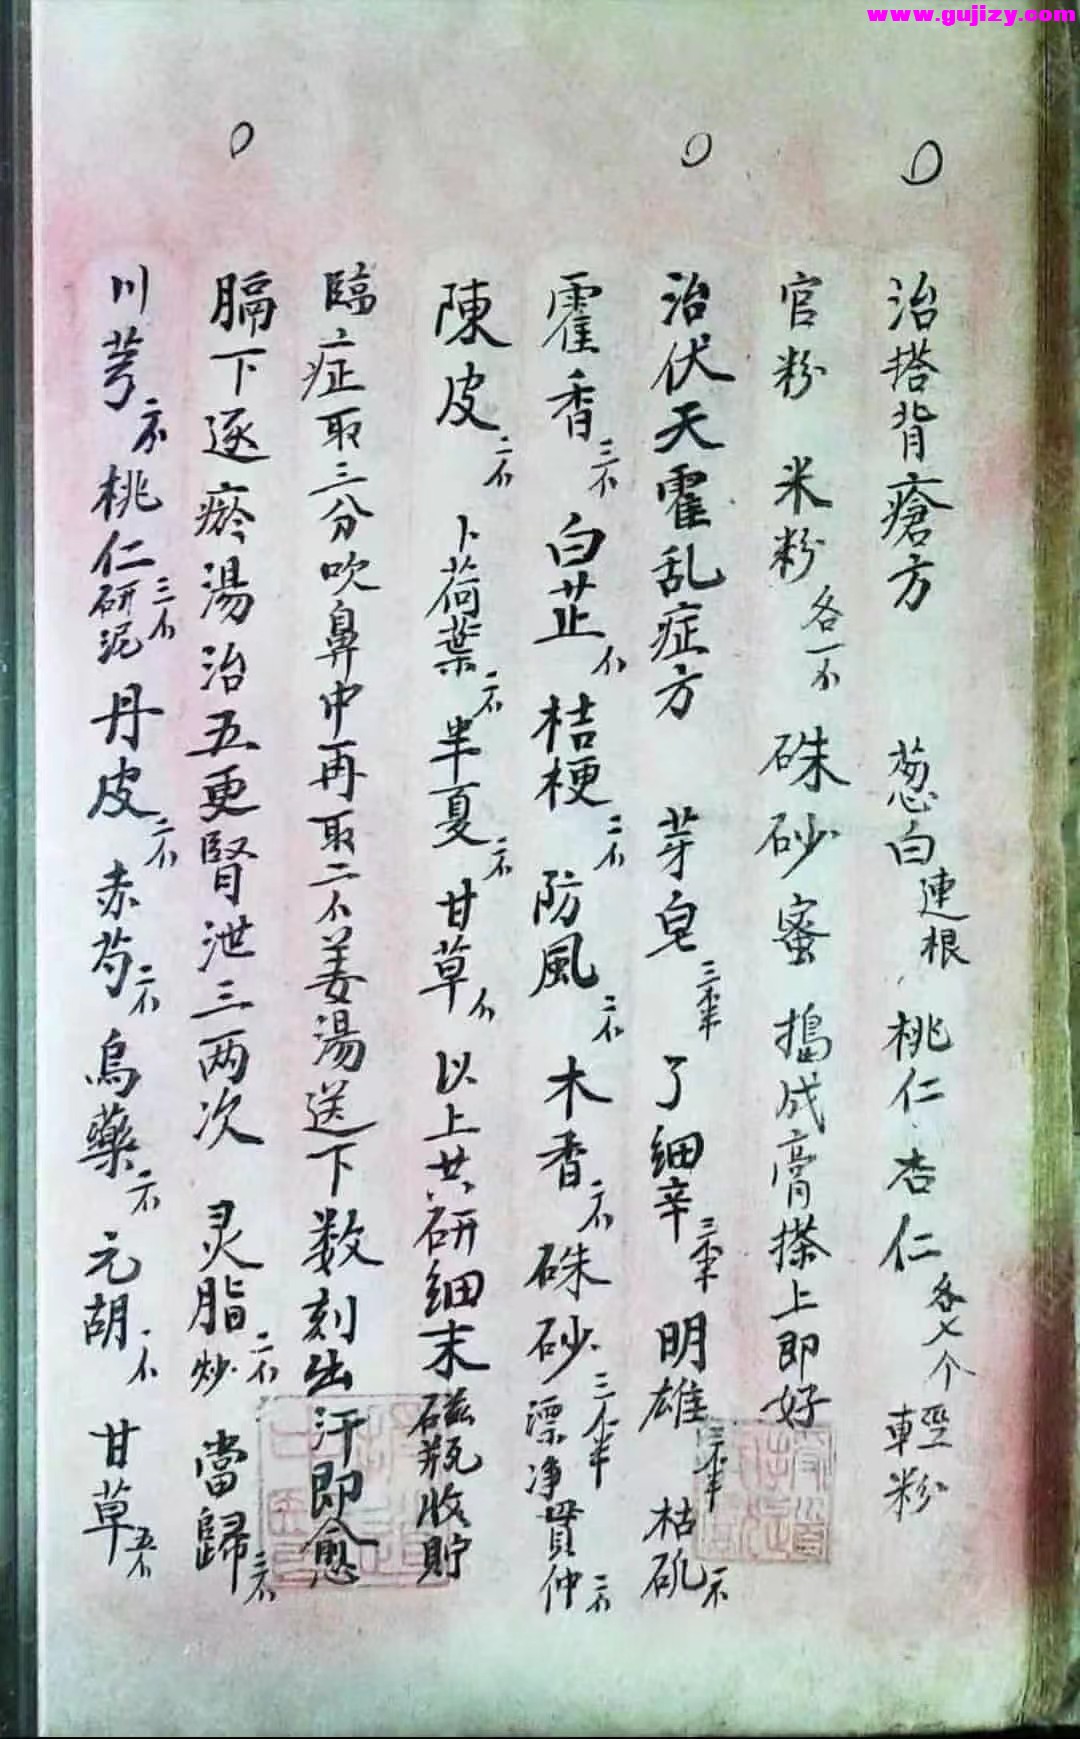 www.gujizy.com
治搭背瘡方 葱白連根 桃仁 杏仁各七个 輕粉
官粉 米粉各一
硃砂 蜜 搗成膏搽上即好
治伏天霍乱症方 芽皂三半 了細辛三半 明雄三半 枯矾一
霍香三 白芷 桔梗二 防風二 木香二 硃砂三半漂净 貫仲二
陳皮二 卜荷葉二 半夏二 甘草 以上共研細末磁瓶收貯
臨症取三分吹鼻中再取二 姜湯送下数刻出汗即愈
膈下逐瘀湯治五更腎泄三两次 灵脂炒二 當歸三
川芎二 桃仁研泥三 丹皮二 赤芍二 烏藥二 元胡一 甘草五